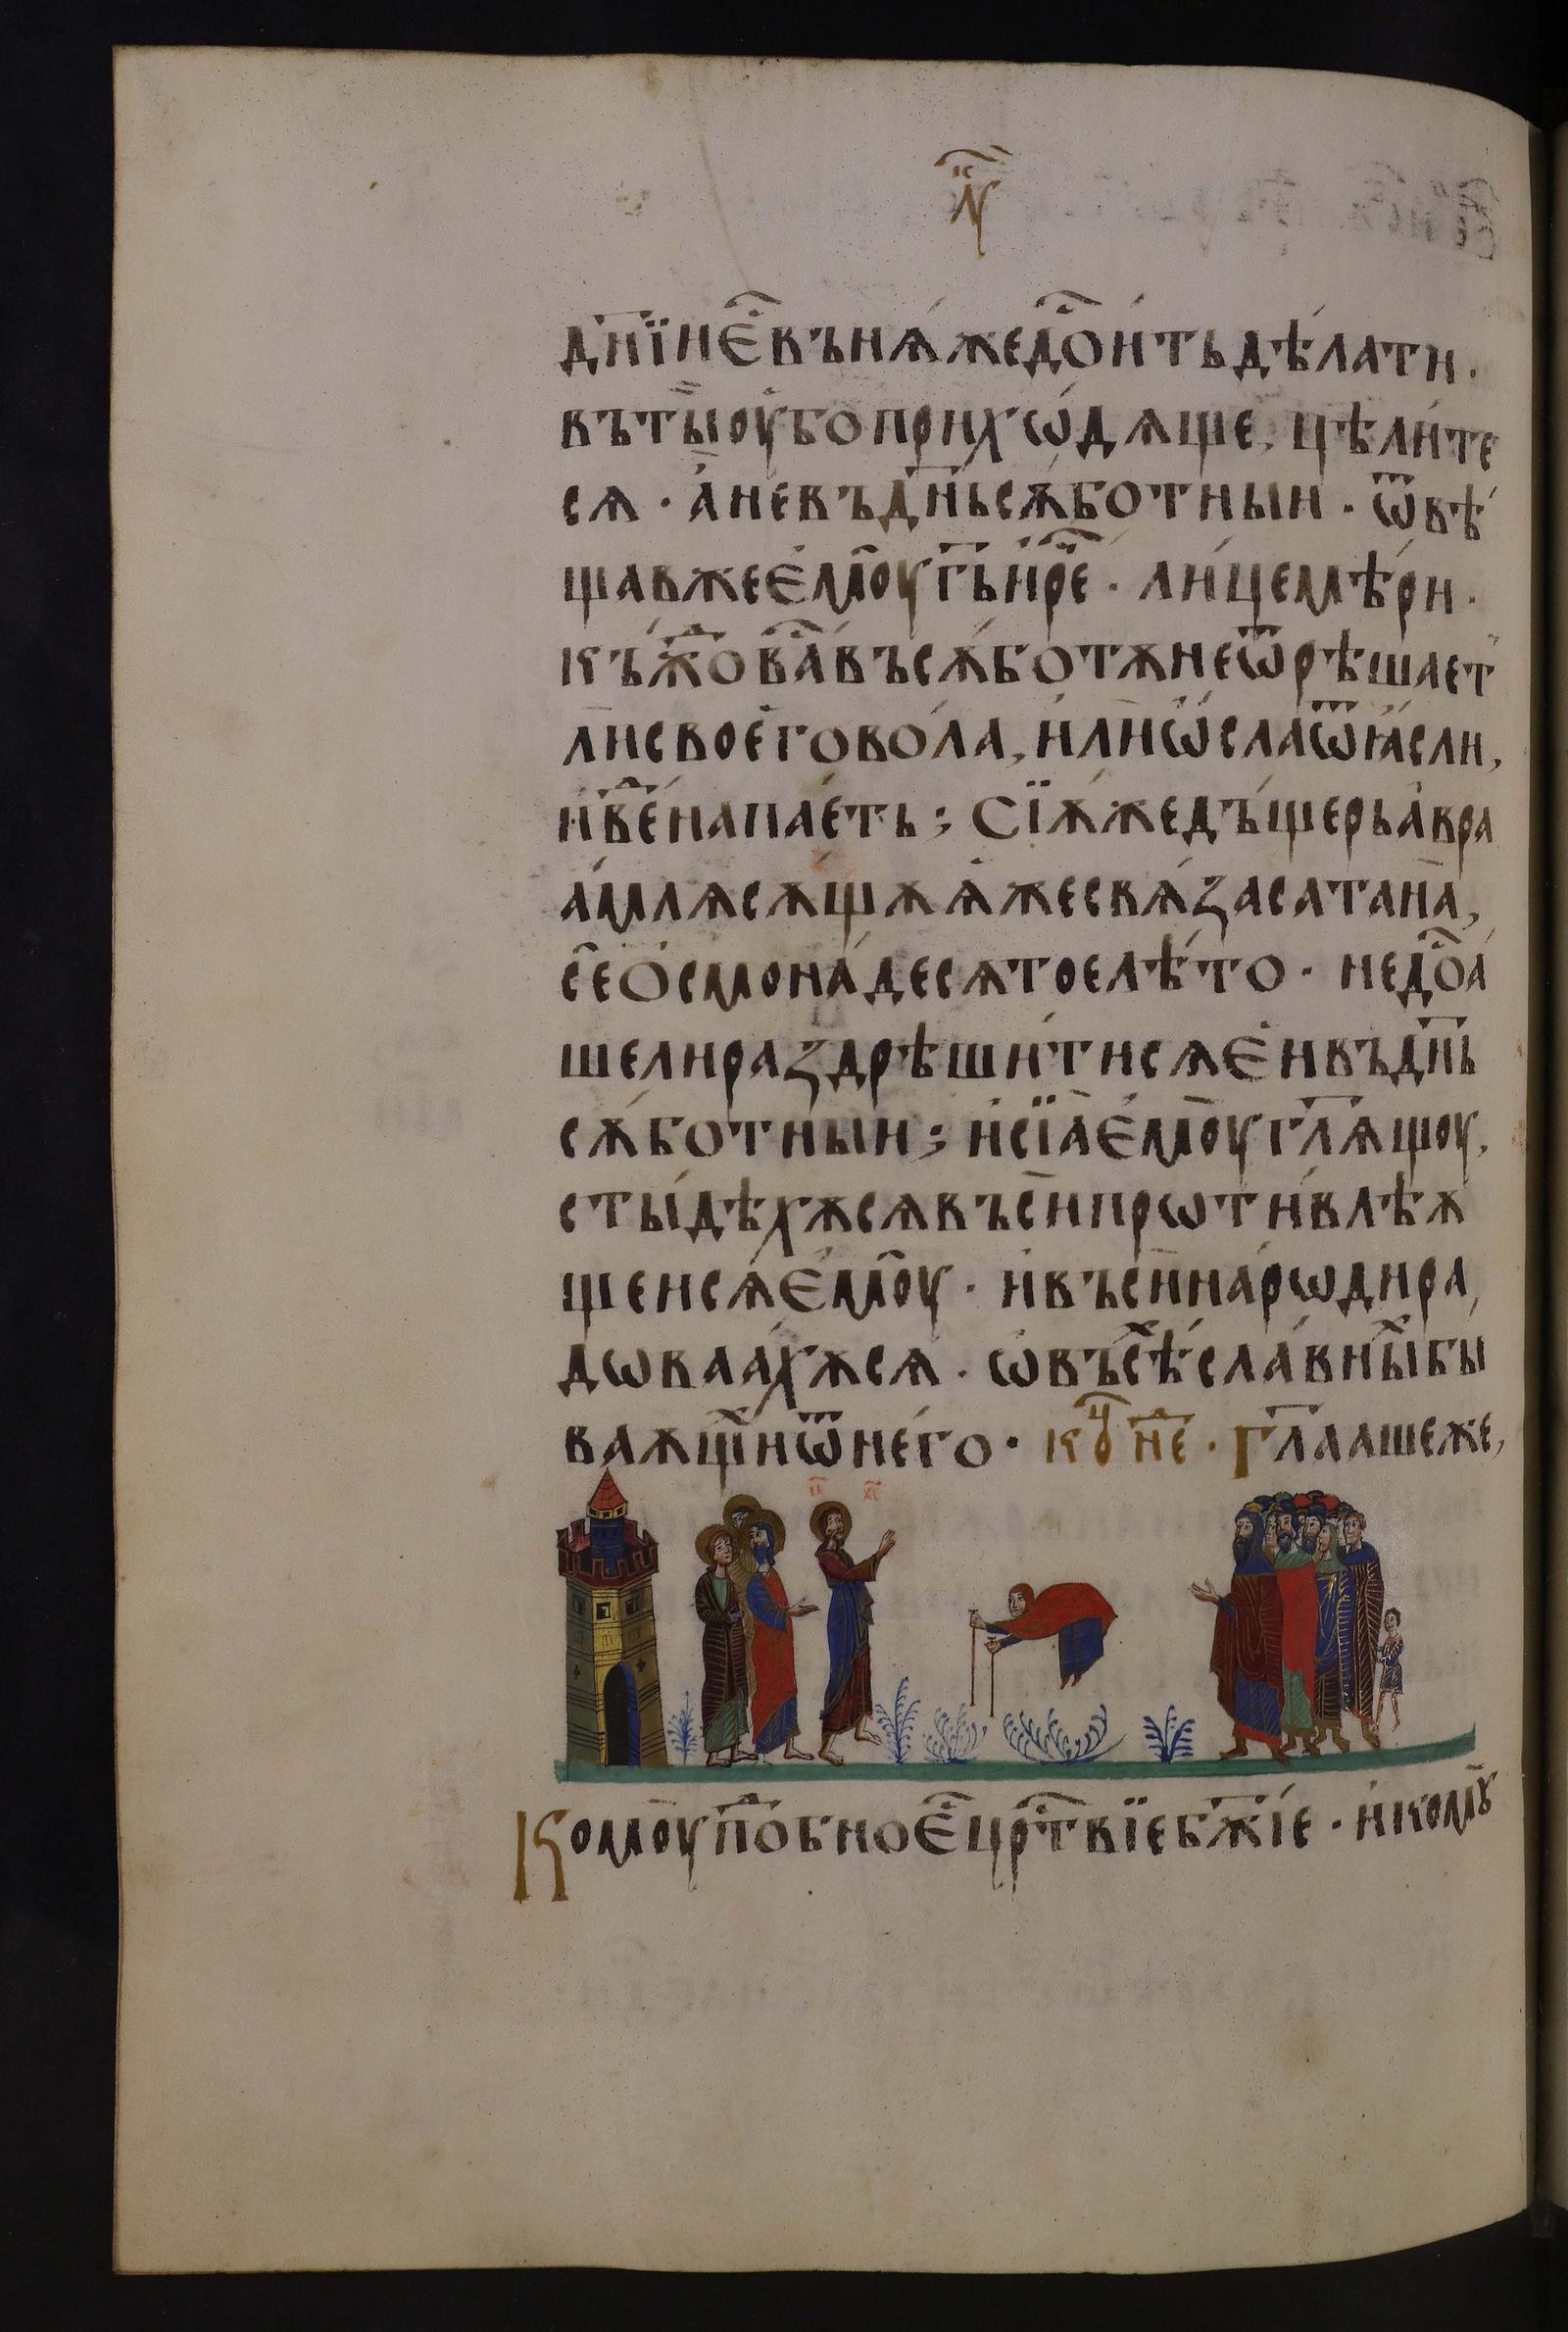 дн҃їи є҆ⷭ҇ въ нѧ́же дⷪ҇ои́ть дѣ́лати ·
въ ты̏ оу҆бо приⷯхѡ́дѧще, цѣли́те
сѧ · а҆ не въ дн҃ь сѫ́ботныи · ѿвѣ́
щав же є҆моу̑ г҃ь и҆ рⷱ҇е · ли́цемѣ́ри ·
къ́жⷣо ва́ⷭ въ сѫ́ботѫ не ѿрѣшает
ли своего̀ во́ла, и҆ли̏ ѡ҆́сла ѿ ꙗ҆́сли,
и҆ веⷣ́ напае́ть ; Сїѫ́ же дъ́щерь а҆вра
а́млѧ сѫ́щѫ ѫ҆́же свѧ́за сатана̀,
се̑ ѻ҆смона́десѧтое лѣ́то · не дⷪ҇оа́
ше ли раздрѣши́ти сѧ є҆и въ дн҃ь
сѫ́ботныи ; и҆ сїа̀ є҆моу̑ гл҃ѧщоу,
сты́дѣхѫ сѧ въси̏ прѡти́влѣѫ
щеи сѧ́ є҆моу̑ · и҆ въси̏ на́рѡди ра
дѡваа́хѫ сѧ · ѡ҆ въсѣ́ⷯ сла́вныⷯ бы
ваѫщіиⷯ ѿ него́ · коⷰ҇ неⷣ · гл҃ааше же,
І҃С Х҃С
Комоу̀ поⷣбно є҆ⷭ҇ црⷭ҇твїе бж҃іе · и҆ комꙋ̀